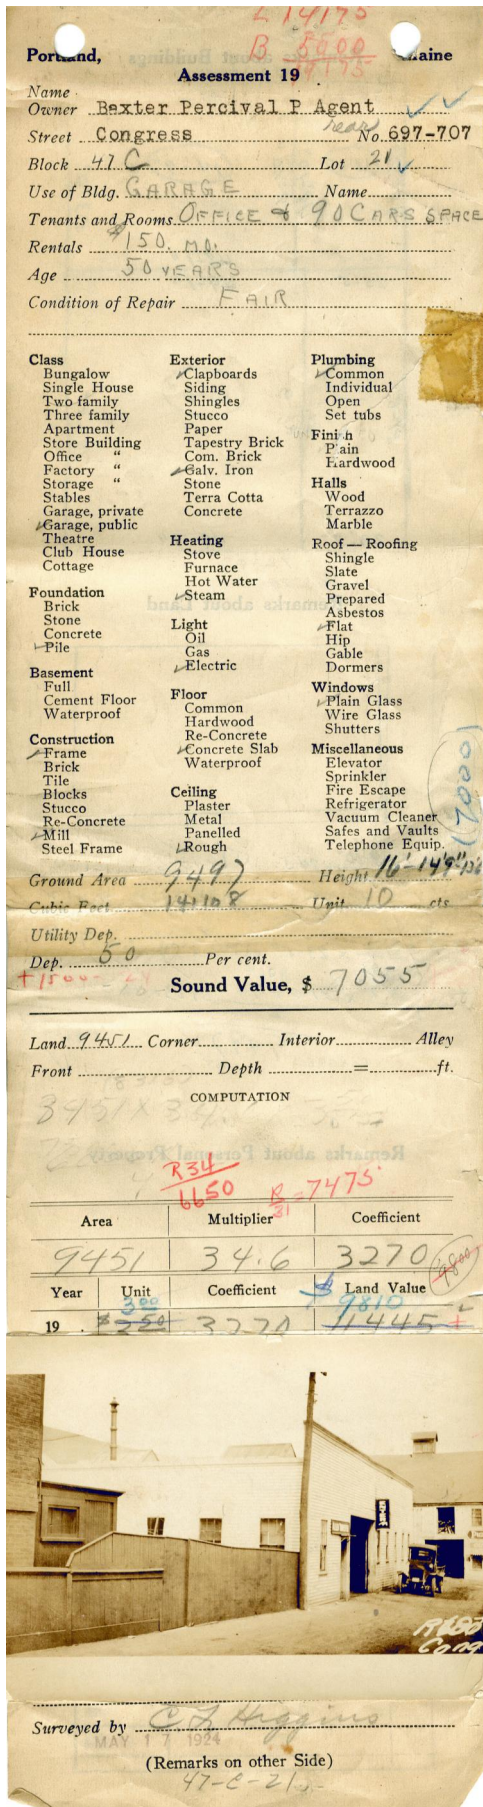 L 14175
B 5000
19175
Portland, Maine
Assessment 19
Name
Owner Baxter Percival P Agent
Street Congress rear No. 697-707
Block 47 C Lot 21
Use of Bldg. GARAGE Name
Tenants and Rooms OFFICE & 90 CARS SPACE
Rentals $150. MO.
Age 50 YEARS
Condition of Repair FAIR
Class
Bungalow
Single House
Two family
Three family
Apartment
Store Building
Office "
Factory "
Storage "
Stables
Garage, private
Garage, public
Theatre
Club House
Cottage
Foundation
Brick
Stone
Concrete
Pile
Basement
Full
Cement Floor
Waterproof
Construction
Frame
Brick
Tile
Blocks
Stucco
Re-Concrete
Mill
Steel Frame
Exterior
Clapboards
Siding
Shingles
Stucco
Paper
Tapestry Brick
Com. Brick
Galv. Iron
Stone
Terra Cotta
Concrete
Heating
Stove
Furnace
Hot Water
Steam
Light
Oil
Gas
Electric
Floor
Common
Hardwood
Re-Concrete
Concrete Slab
Waterproof
Ceiling
Plaster
Metal
Panelled
Rough
Plumbing
Common
Individual
Open
Set tubs
Finish
Plain
Hardwood
Halls
Wood
Terrazzo
Marble
Roof — Roofing
Shingle
Slate
Gravel
Prepared
Asbestos
Flat
Hip
Gable
Dormers
Windows
Plain Glass
Wire Glass
Shutters
Miscellaneous
Elevator
Sprinkler
Fire Escape
Refrigerator
Vacuum Cleaner
Safes and Vaults
Telephone Equip.
Ground Area 9497 Height 16'-14'9"
Cubic Feet 141108 Unit 10 cts.
Utility Dep.
Dep. 50 Per cent.
+1500
Sound Value, $ 7055
Land 9451 Corner Interior Alley
Front Depth = ft.
COMPUTATION
R34
6650
B
31 = 7475
Area Multiplier Coefficient
9451 34.6 3270
9800
Year Unit Coefficient Land Value
3.00 $ 9810
19 $ 3.50 3270 11445
Surveyed by C L Higgins
MAY 17 1924
(Remarks on other Side)
47-C-21